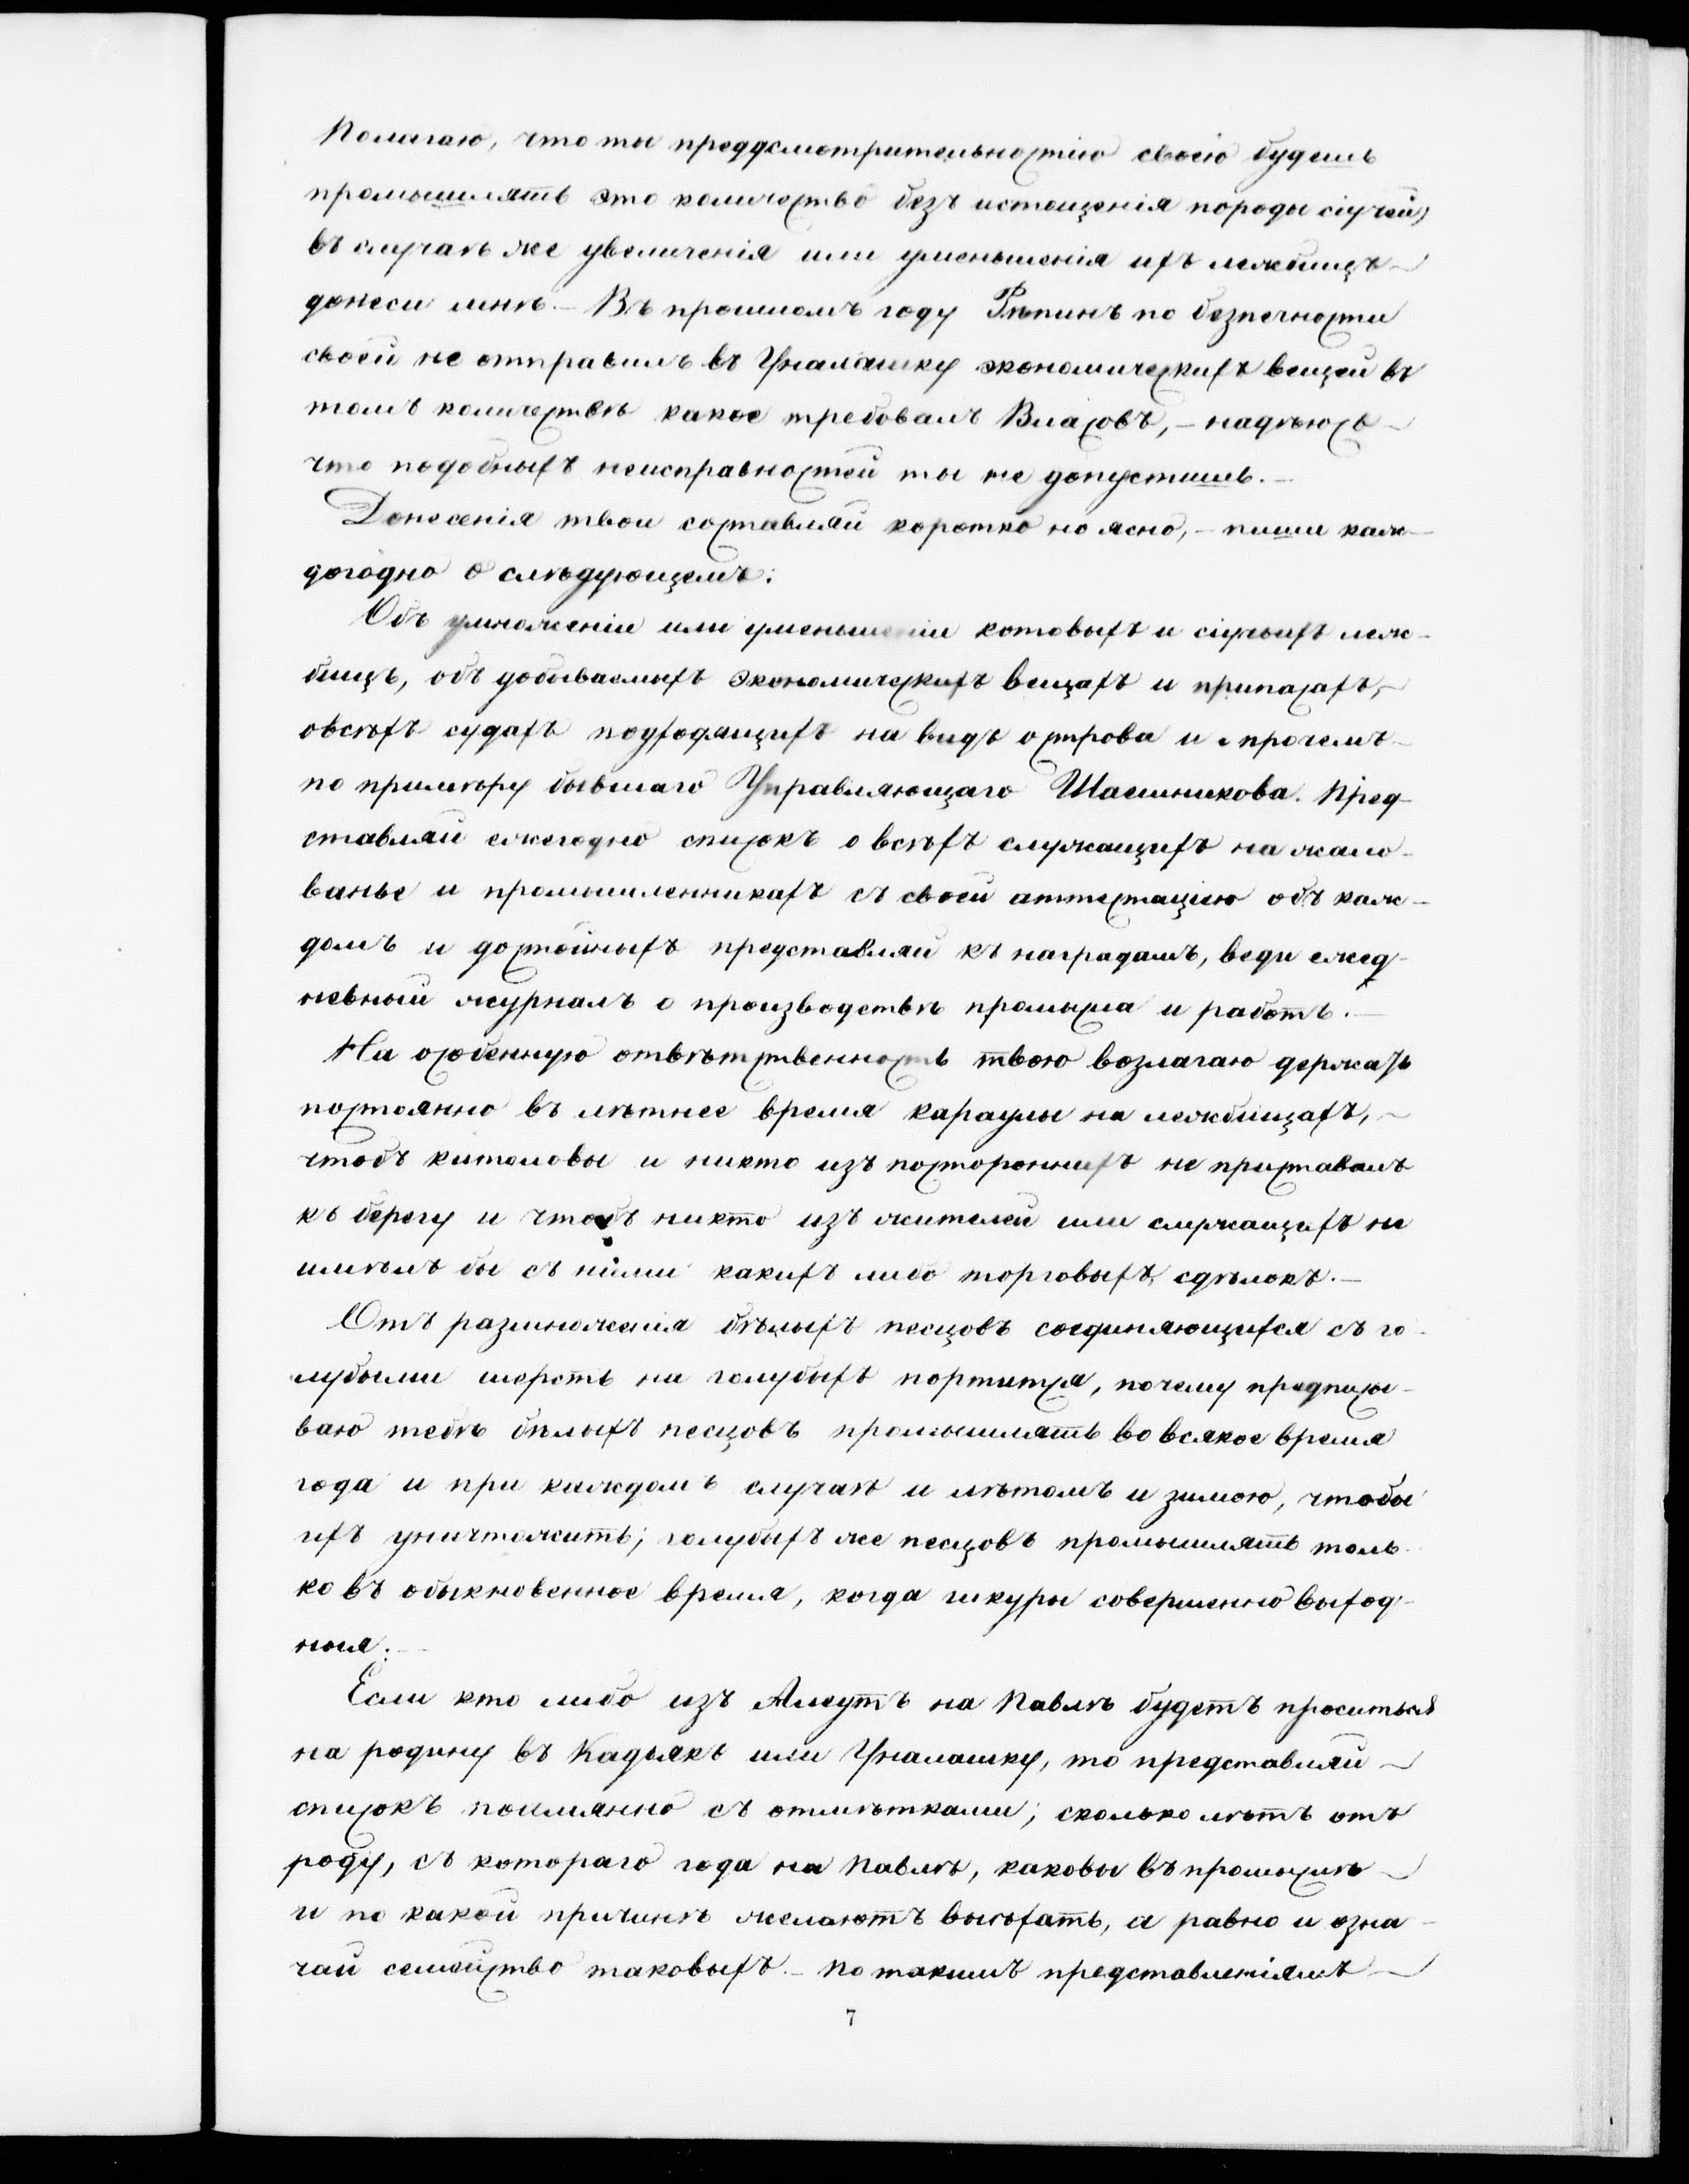 Полагаю, что ты преддсмотрительностію своею будешь
промышлять это количество безъ истощенія породы сіучей,
въ случаѣ же увеличенія или уменьшенія ихъ лежбищъ
донеси мнѣ. – Въ прошломъ году Рѣпинъ по безпечности
своей не отправилъ въ Уналашку экономическихъ вещей въ
томъ количествѣ какое требовалъ Власовъ, – надѣюсь
что подобныхъ неисправностей ты не допустишь. –
Донесенія твои составляй коротко но ясно, – пиши каж-
догодно о слѣдующемъ:
Объ умноженіи или уменьшеніи котовыхъ и сіучьихъ леж-
бищъ, объ добываемыхъ экономическихъ вещахъ и припасахъ,
о всѣхъ судахъ подходящихъ на видъ острова и о прочемъ
по примѣру бывшаго Управляющаго Шаешникова. Пред-
ставляй ежегодно списокъ о всѣхъ служащихъ на жало-
ванье и промышленникахъ съ своей аттестаціею объ каж-
домъ и достойныхъ представляй къ наградамъ, веди ежед-
невный журналъ о производствѣ промысла и работъ. –
На особенную отвѣтственность твою возлагаю держать
постоянно въ лѣтнее время караулы на лежбищахъ,
чтобъ китоловы и никто изъ постороннихъ не приставалъ
къ берегу и чтобъ никто изъ жителей или служащихъ не
имѣлъ бы съ ними какихъ либо торговыхъ сдѣлокъ. –
Отъ размноженія бѣлыхъ песцовъ соединяющихся съ го-
лубыми шерсть на голубыхъ портится, почему предписы-
ваю тебѣ бѣлыхъ песцовъ промышлять во всякое время
года и при каждомъ случаѣ и лѣтомъ и зимою, чтобы
ихъ уничтожить; голубыхъ же песцовъ промышлять толь-
ко въ обыкновенное время, когда шкуры совершенно выход-
ныя. –
Если кто либо изъ Алеутъ на Павлѣ будетъ проситься
на родину въ Кадьякъ или Уналашку, то представляй
списокъ поимянно съ отмѣтками; сколько лѣтъ отъ
роду, съ котораго года на Павлѣ, каковы въ промыслѣ
и по какой причинѣ желаютъ выѣхать, а равно и озна-
чай семейство таковыхъ. – По такимъ представленіямъ
7